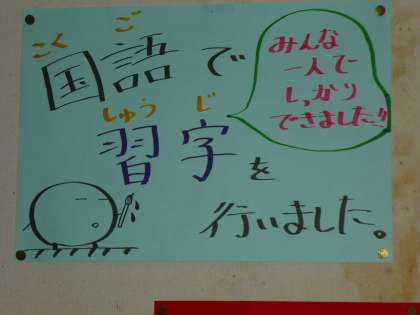 こくご
国語で
しゅうじ
習字を
行いました。
みんな
一人で
しっかり
できました!!